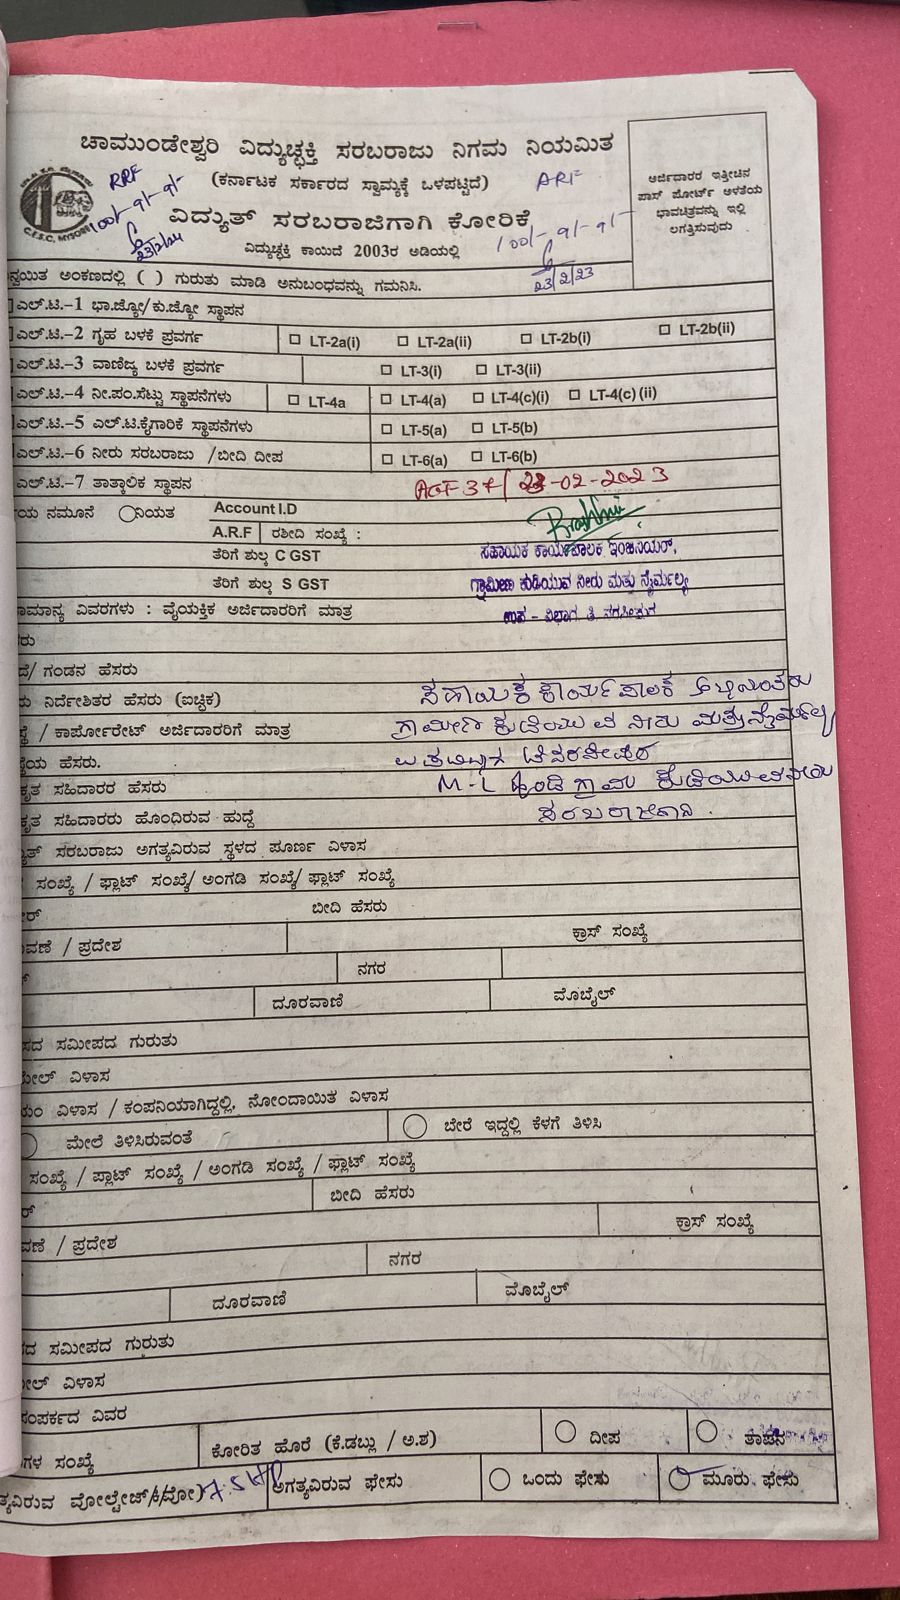 ಚಾಮುಂಡೇಶ್ವರಿ ವಿದ್ಯುಚ್ಛಕ್ತಿ ಸರಬರಾಜು ನಿಗಮ ನಿಯಮಿತ
(ಕರ್ನಾಟಕ ಸರ್ಕಾರದ ಸ್ವಾಮ್ಯಕ್ಕೆ ಒಳಪಟ್ಟಿದೆ)
ವಿದ್ಯುತ್ ಸರಬರಾಜಿಗಾಗಿ ಕೋರಿಕೆ
ವಿದ್ಯುಚ್ಛಕ್ತಿ ಕಾಯಿದೆ 2003ರ ಅಡಿಯಲ್ಲಿ
C.E.S.C, MYSORE
RRF
100/-9/-9/-
23/2/24
ARF
100/-9/-9/-
23/2/23
ಅರ್ಜಿದಾರರ ಇತ್ತೀಚಿನ
ಪಾಸ್ ಪೋರ್ಟ್ ಅಳತೆಯ
ಭಾವಚಿತ್ರವನ್ನು ಇಲ್ಲಿ
ಲಗತ್ತಿಸುವುದು
ನ್ವಯಿತ ಅಂಕಣದಲ್ಲಿ ( ) ಗುರುತು ಮಾಡಿ ಅನುಬಂಧವನ್ನು ಗಮನಿಸಿ.
ಎಲ್.ಟಿ.-1 ಭಾ.ಜ್ಯೋ/ಕು.ಜ್ಯೋ ಸ್ಥಾಪನ
ಎಲ್.ಟಿ.-2 ಗೃಹ ಬಳಕೆ ಪ್ರವರ್ಗ LT-2a(i) LT-2a(ii) LT-2b(i) LT-2b(ii)
ಎಲ್.ಟಿ.-3 ವಾಣಿಜ್ಯ ಬಳಕೆ ಪ್ರವರ್ಗ LT-3(i) LT-3(ii)
ಎಲ್.ಟಿ.-4 ನೀ.ಪಂ.ಸೆಟ್ಟು ಸ್ಥಾಪನೆಗಳು LT-4a LT-4(a) LT-4(c)(i) LT-4(c) (ii)
ಎಲ್.ಟಿ.-5 ಎಲ್.ಟಿ.ಕೈಗಾರಿಕೆ ಸ್ಥಾಪನೆಗಳು LT-5(a) LT-5(b)
ಎಲ್.ಟಿ.-6 ನೀರು ಸರಬರಾಜು /ಬೀದಿ ದೀಪ LT-6(a) LT-6(b)
ಎಲ್.ಟಿ.-7 ತಾತ್ಕಾಲಿಕ ಸ್ಥಾಪನ 23-02-2023
ಯ ನಮೂನೆ ನಿಯತ Account I.D
A.R.F ರಶೀದಿ ಸಂಖ್ಯೆ :
ತೆರಿಗೆ ಶುಲ್ಕ C GST ಸಹಾಯಕ ಕಾರ್ಯಪಾಲಕ ಇಂಜಿನಿಯರ್,
ತೆರಿಗೆ ಶುಲ್ಕ S GST ಗ್ರಾಮೀಣ ಕುಡಿಯುವ ನೀರು ಮತ್ತು ನೈರ್ಮಲ್ಯ
ಾಮಾನ್ಯ ವಿವರಗಳು : ವೈಯಕ್ತಿಕ ಅರ್ಜಿದಾರರಿಗೆ ಮಾತ್ರ ಉಪ - ವಿಭಾಗ ತಿ. ನರಸೀಪುರ
ರು
ದೆ/ ಗಂಡನ ಹೆಸರು
ು ನಿರ್ದೇಶಿತರ ಹೆಸರು (ಐಚ್ಛಿಕ) ಸಹಾಯಕ ಕಾರ್ಯಪಾಲಕ
/ ಕಾರ್ಪೋರೇಟ್ ಅರ್ಜಿದಾರರಿಗೆ ಮಾತ್ರ ಗ್ರಾಮೀಣ ಕುಡಿಯುವ ನೀರು ಮತ್ತು ನೈರ್ಮಲ್ಯ
ಯ ಹೆಸರು.
ಕೃತ ಸಹಿದಾರರ ಹೆಸರು ಹುಂಡಿ ಗ್ರಾಮ ಕುಡಿಯುವ ನೀರು
ಕೃತ ಸಹಿದಾರರು ಹೊಂದಿರುವ ಹುದ್ದೆ ಸರಬರಾಜಿಗಾಗಿ.
ುತ್ ಸರಬರಾಜು ಅಗತ್ಯವಿರುವ ಸ್ಥಳದ ಪೂರ್ಣ ವಿಳಾಸ
ಸಂಖ್ಯೆ / ಫ್ಲಾಟ್ ಸಂಖ್ಯೆ/ ಅಂಗಡಿ ಸಂಖ್ಯೆ/ ಫ್ಲಾಟ್ ಸಂಖ್ಯೆ
ರ್ ಬೀದಿ ಹೆಸರು
ವಣೆ / ಪ್ರದೇಶ ಕ್ರಾಸ್ ಸಂಖ್ಯೆ
ನಗರ
ದೂರವಾಣಿ ಮೊಬೈಲ್
ಸದ ಸಮೀಪದ ಗುರುತು
ಮೇಲ್ ವಿಳಾಸ
ುಂ ವಿಳಾಸ / ಕಂಪನಿಯಾಗಿದ್ದಲ್ಲಿ, ನೋಂದಾಯಿತ ವಿಳಾಸ
ಮೇಲೆ ತಿಳಿಸಿರುವಂತೆ ಬೇರೆ ಇದ್ದಲ್ಲಿ ಕೆಳಗೆ ತಿಳಿಸಿ
ಸಂಖ್ಯೆ / ಪ್ಲಾಟ್ ಸಂಖ್ಯೆ / ಅಂಗಡಿ ಸಂಖ್ಯೆ / ಫ್ಲಾಟ್ ಸಂಖ್ಯೆ
ರ್ ಬೀದಿ ಹೆಸರು
ವಣೆ / ಪ್ರದೇಶ ಕ್ರಾಸ್ ಸಂಖ್ಯೆ
ನಗರ
ದೂರವಾಣಿ ಮೊಬೈಲ್
ದ ಸಮೀಪದ ಗುರುತು
ೇಲ್ ವಿಳಾಸ
ಸಂಪರ್ಕದ ವಿವರ
ಗಳ ಸಂಖ್ಯೆ ಕೋರಿತ ಹೊರೆ (ಕೆ.ಡಬ್ಲು / ಅ.ಶ) ದೀಪ ತಾಪನ
ತ್ಯವಿರುವ ವೋಲ್ಟೇಜ್ 7.5 HP ಅಗತ್ಯವಿರುವ ಫೇಸು ಒಂದು ಫೇಸು ಮೂರು ಫೇಸು